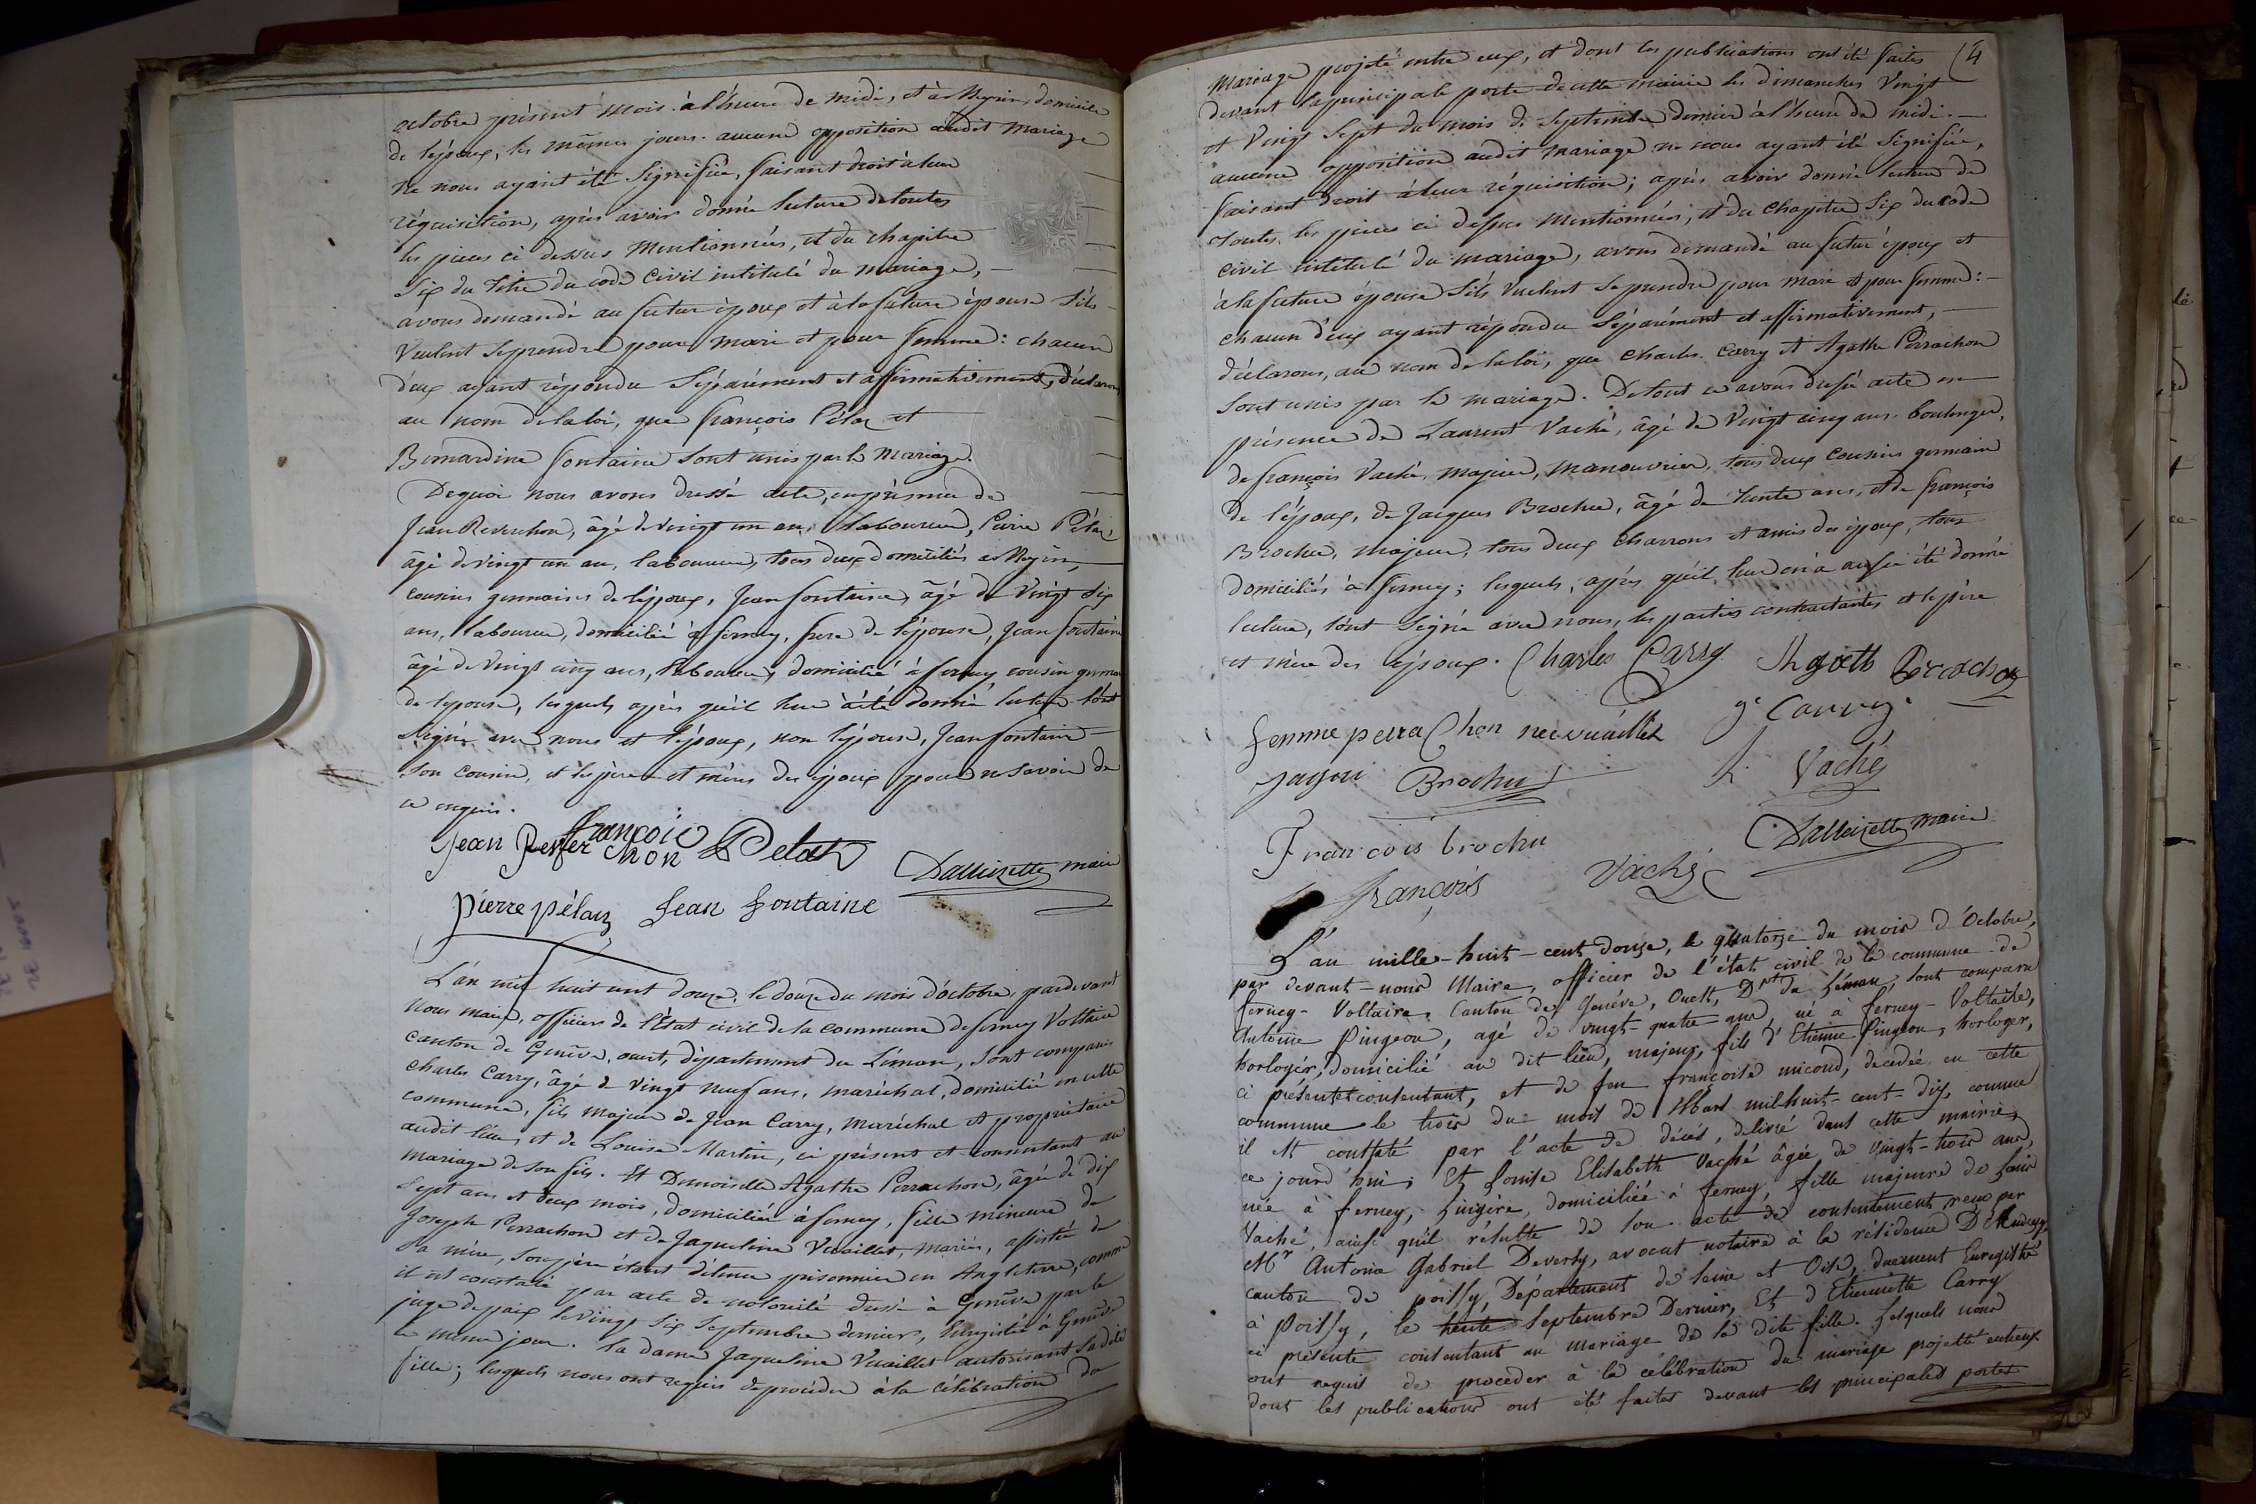 octobre présent mois à l'heure de midi, et à Meyrin, domicile
de l'époux, les mêmes jours. aucune opposition audit mariage
ne nous ayant été signifiée, faisant droit à leur
réquisition, après avoir donné lecture de toutes
les pieces ci dessus mentionnées, et du chapitre
six du titre du code civil intitulé du mariage, —
avons demandé au futur époux et à la future épouse s'ils
veulent se prendre pour mari et pour femme: chacun
d'eux ayant répondu séparément et affirmativement, déclarons
au nom de la loi, que françois Pélaz et
Bernardine fontaine sont unis par le mariage.
De quoi nous avons dressé acte, en présence de
Jean Reverchon, âgé de vingt un an, laboureur, Pierre Pélaz,
âgé de vingt un an, laboureur, tous deux domiciliés à Meyrin,
cousins germains de l'époux, Jean fontaine, âgé de vingt six
ans, laboureur, domicilié à ferney, frere de l'épouse, Jean fontaine
âgé de vingt cinq ans, laboureur, domicilié à ferney cousin germain
de l'épouse, lesquels après qu'il leur a été donné lecture l'ont
signé avec nous et l'époux, non l'épouse, Jean fontaine
son cousin, et les pères et mères des époux pour ne savoir de
ce requis.
françois Pelaz
Jean Reverchon
Dallizette maire
pierre pélaz Jean fontaine
L'an mil huit cent douze, le douze du mois d'octobre, pardevant
nous maire, officier de l'État civil de la commune de ferney Voltaire
canton de Genève, ouest, département du Léman, sont comparus
Charles Carry, âgé de vingt neuf ans, maréchal, domicilié en cette
commune, fils majeur de Jean Carry, maréchal et propriétaire
audit lieu, et de Louise Martin, ci présent et consentant au
mariage de son fils. Et Demoiselle Agathe Perrachon, âgée de dix
sept ans et deux mois, domiciliée à ferney, fille mineure de
Joseph Perrachon et de Jaqueline Vuaillet, mariés, assistée de
sa mère, son père étant détenu prisonnier en Angleterre, comme
il est constaté par acte de notoriété dressé à Genève par le
juge de paix le vingt six septembre dernier, enregistré à Genève
le même jour. la dame Jaqueline Vuaillet autorisant sadite
fille; lesquels nous ont requis de procéder à la célébration du
4
mariage projeté entre eux, et dont les publications ont été faites
devant la principale porte de cette mairie les dimanches vingt
et vingt sept du mois de septembre dernier à l'heure de midi. —
aucune opposition audit mariage ne nous ayant été signifiée,
faisant droit à leur réquisition; après avoir donné lecture de
toutes les pieces ci dessus mentionnées, et du chapitre six du code
civil intitulé du mariage, avons demandé au futur époux et
à la future épouse s'ils veulent se prendre pour mari et pour femme: —
chacun d'eux ayant répondu séparément et affirmativement, —
déclarons, au nom de la loi, que Charles Carry et Agathe Perrachon
sont unis par le mariage. De tout ce avons dressé acte en
présence de Laurent Vaché, âgé de vingt cinq ans boulenger,
de françois Vaché, majeur, manouvrier, tous deux cousins germain
de l'époux, de Jacques Brochu, âgé de trente ans, et de françois
Brochu, majeur, tous deux charrons et amis des époux, tous
domiciliés à ferney; lesquels, après qu'il leur en a aussi été donné
lecture, l'ont signé avec nous, les parties contractantes et le père
et mère des époux. Charles Carry Agath Pérachon
femme perrachon née vuaillet
Carry
Brochu
Vaché
françois brochu
Dallizette maire
françois Vaché
L'an mille-huit-cent-douze, le quatorze du mois d'Octobre,
par devant-nous Maire, officier de l'état civil de la commune de
ferney-Voltaire, Canton de Genève, Ouest, Dpt du Léman, sont comparu
Antoine Pingeon, agé de vingt-quatre ans, né à ferney-Voltaire,
horloger, domicilié au dit lieu, majeur, fils d'Etienne Pingeon, horloger,
ci présent et consentant, et de feu françoise micoud, décedée en cette
commune le trois du mois de Mars mil-huit-cent-dix, comme
il est constaté par l'acte de décès, delivré dans cette mairie,
ce jourd'hui; Et Louise Elisabeth Vaché âgée de vingt-trois ans,
née à ferney, Lingère, domiciliée à ferney, fille majeure de Louis
Vaché, ainsi qu'il résulte de son acte de consentement reçu par
Mr Antoine Gabriel Deverly, avocat notaire à la résidence
canton de poissy, Département de Seine et Oise, duement Enregistré
à Poissy, le trente Septembre Dernier, Et d'Etiennette Carry
ci présente consentant au mariage de la dite fille. Lesquels nous
ont requis de procéder à la célébration du mariage projetté entreux
dont les publications ont été faites devant les principales portes